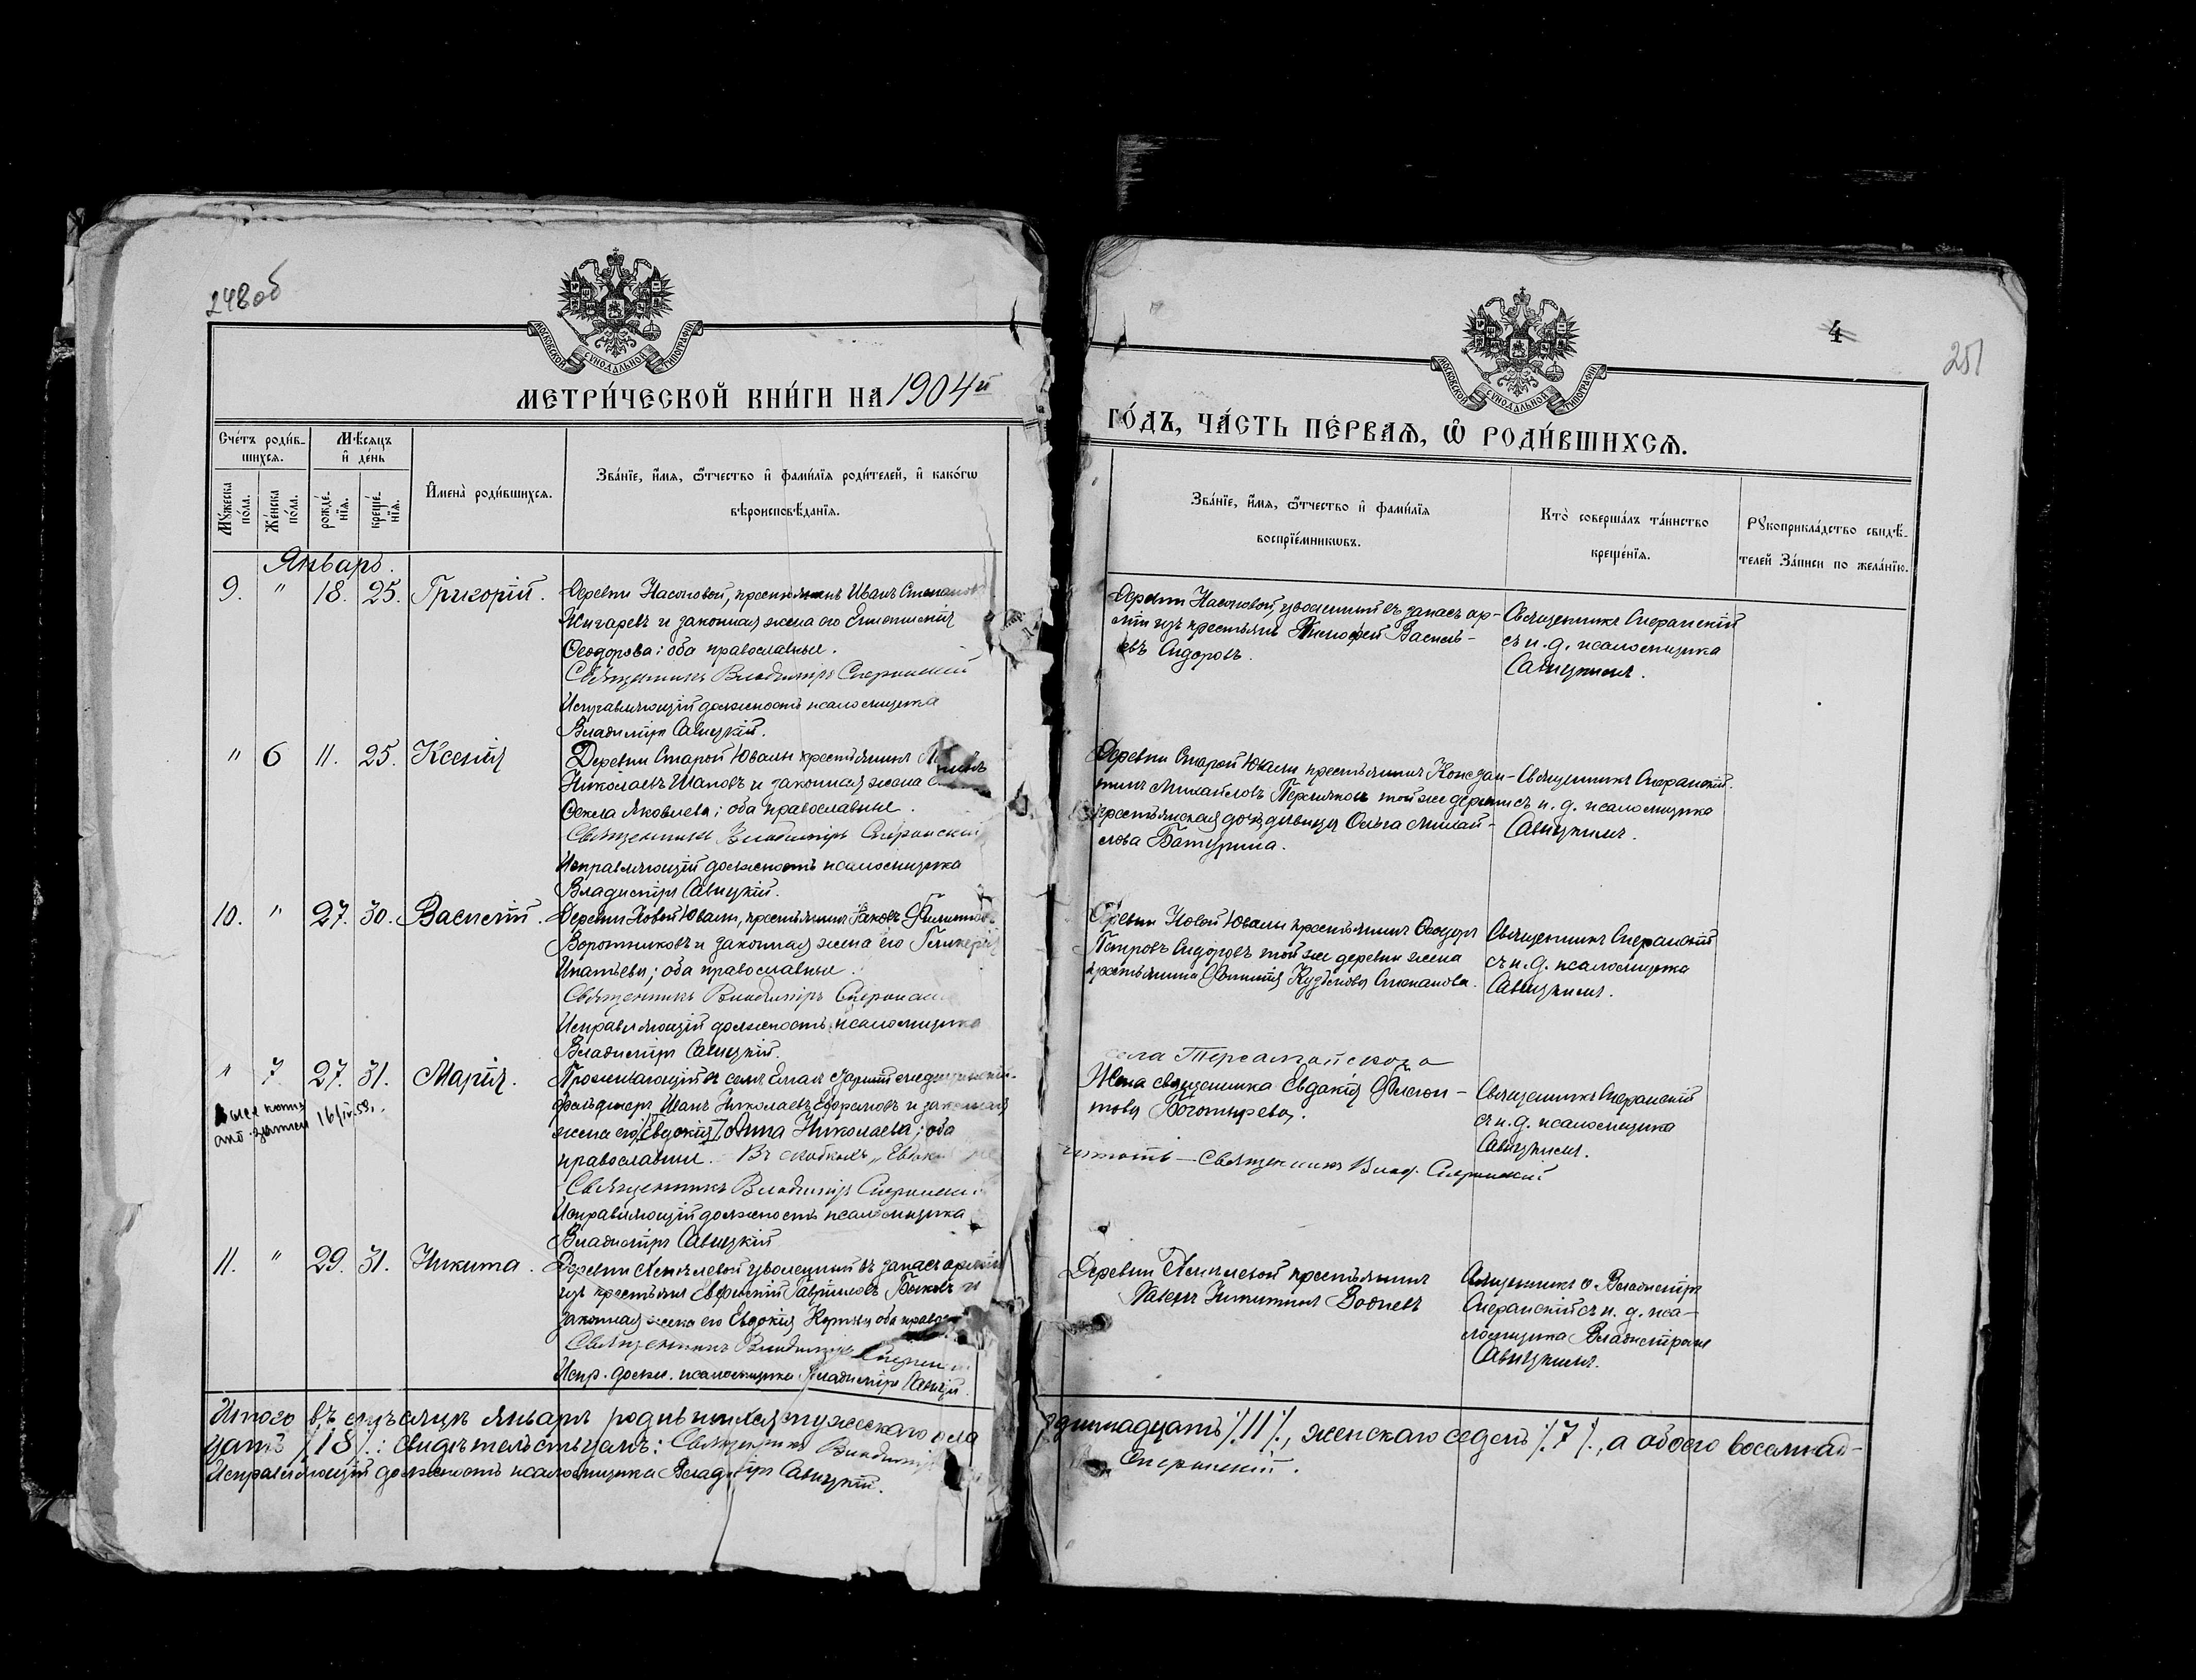 248об
МОСКОВСКОЙ СѴНОДАЛЬНОЙ ТИПОГРАФІИ
МЕТРИ́ЧЕСКОЙ КНИ́ГИ НА 1904й
Сче́тъ роди́в-
шихсѧ.
Мѣ́сѧцъ
и҆ де́нь
Мꙋ́жеска
по́ла.
Же́нска
по́ла.
рожде́-
нїѧ.
креще́-
нїѧ.
И҆мена̀ роди́вшихсѧ.
Зва́нїе, и҆́мѧ, ѻ҆́тчество и҆ фами́лїѧ роди́телей, и҆ како́гѡ
вѣроисповѣ́данїѧ.
Январь.
9. " 18. 25. Григорій. Деревни Насоновой, крестьянинъ Иванъ Степановъ
Жигаревъ и законная жена его
Ѳеодорова; оба православные.
Священникъ Владиміръ Сперанскій
Исправляющій должность псаломщика
Владиміръ Савицкій.
" 6 11. 25. Ксенія Деревни Старой Ювалы крестьянинъ
Николаевъ Шаповъ и законная жена
Ѳекла Яковлева; оба православные.
Священникъ Владиміръ Сперанскій
Исправляющій должность псаломщика
Владиміръ Савицкій.
10. " 27. 30. Василій. Деревни Новой Ювалы, крестьянинъ Іаковъ Филипповъ
Воротниковъ и законная жена его Гликерія
Ипатьева; оба православные.
Священникъ Владиміръ Сперанскій
Исправляющій должность псаломщика
Владиміръ Савицкій.
" 7 27. 31. Марія. Проживающій въ селѣ Елани
фельдшеръ Иванъ Николаевъ Ефремовъ и законная
жена его [Евдокія] Анна Николаева; оба
православные. Въ скобкахъ „Евдокія" не
16/IV-59.
Священникъ Владиміръ Сперанскій
Исправляющій должность псаломщика
Владиміръ Савицкій
11. " 29. 31. Никита. Деревни уволенный въ запасъ арміи
изъ крестьянъ Евфимій Гавриловъ Быковъ и
законная жена его Евдокія оба правос
Священникъ Владиміръ
Испр. должн. псаломщика Владиміръ Савицкій.
Итого въ мѣсяцѣ январѣ родившихся мужескаго пола
цать /18/.: свидѣтельствуемъ: Священникъ Владиміръ
Исправляющій должность псаломщика Владиміръ Савицкій.
4
251
МОСКОВСКОЙ СѴНОДАЛЬНОЙ ТИПОГРАФІИ
ГО́ДЪ, ЧА́СТЬ ПЕ́РВАѦ, Ѽ РОДИ́ВШИХСѦ.
Зва́нїе, и҆́мѧ, ѻ҆́тчество и҆ фами́лїѧ
воспрїе́мникѡвъ.
Кто̀ соверша́лъ та́инство
креще́нїѧ.
Рꙋкоприкла́дство свидѣ́-
телей за́писи по жела́нїю.
Деревни Насоновой, уволенный въ запасъ ар-
міи изъ крестьянъ Василь-
евъ Сидоровъ.
Священникъ Сперанскій
съ и. д. псаломщика
Савицкимъ.
Деревни Старой Ювалы крестьянинъ Констан-
тинъ Михайловъ Пермяковъ той же деревни
крестьянская дочь дѣвица Ольга Михай-
лова Батурина.
Священникъ Сперанскій.
съ и. д. псаломщика
Савицкимъ.
Деревни Новой Ювалы крестьянинъ Ѳеодоръ
Петровъ Сидоровъ той же деревни жена
крестьянина Кузьмова Степанова.
Священникъ Сперанскій
съ и. д. псаломщика
Савицкимъ.
села
Жена священника Евдокія
Богатырева.
читать — Священникъ Влад. Сперанскій
Священникъ Сперанскій
съ и. д. псаломщика
Савицкимъ.
Деревни крестьянинъ
Никитинъ
Священникъ о. Владиміръ
Сперанскій съ и. д. пса-
ломщика Владиміромъ
Савицкимъ.
одиннадцать /11/, женскаго седмь /7/, а обоего восемнад-
Сперанскій.